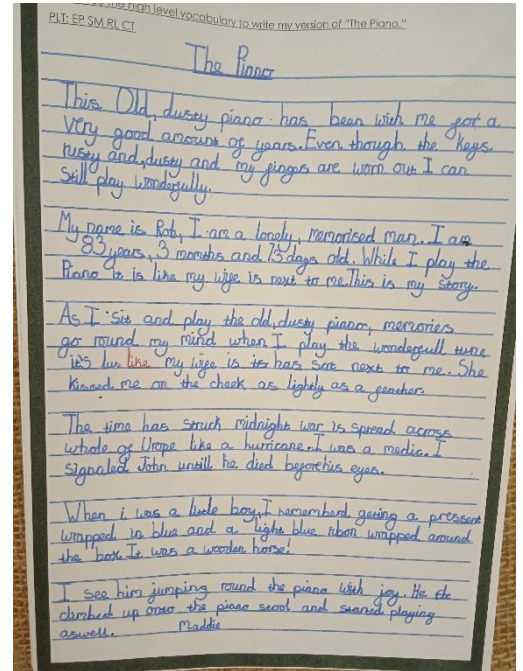 high level vocabulary to write my version of "The Piano."
PLT: EP SM RL CT
The Piano
This Old, dusty piano has been with me for a
very good amount of years. Even though the keys
rusty and, dusty and my fingers are worn out I can
still play wonderfully.
My name is Rob, I am a lonely, memorised man. I am
83 years, 3 months and 13 days old. While I play the
Piano it is like my wife is next to me. This is my story.
As I sit and play the old, dusty piano, memories
go round my mind when I play the wonderfull tune
it's like my wife is has sat next to me. She
kissed me on the cheek as lightly as a feather.
The time has struck midnight war is spread across
whole of Urope like a hurricane. I was a medic. I
signaled John untill he died before his eyes.
When i was a little boy, I rememberd geting a pressent
wrapped in blue and a light blue ribon wrapped around
the box. It was a wooden horse!
I see him jumping round the piano with joy. He
climbed up onto the piano stool and started playing
aswell. Maddie